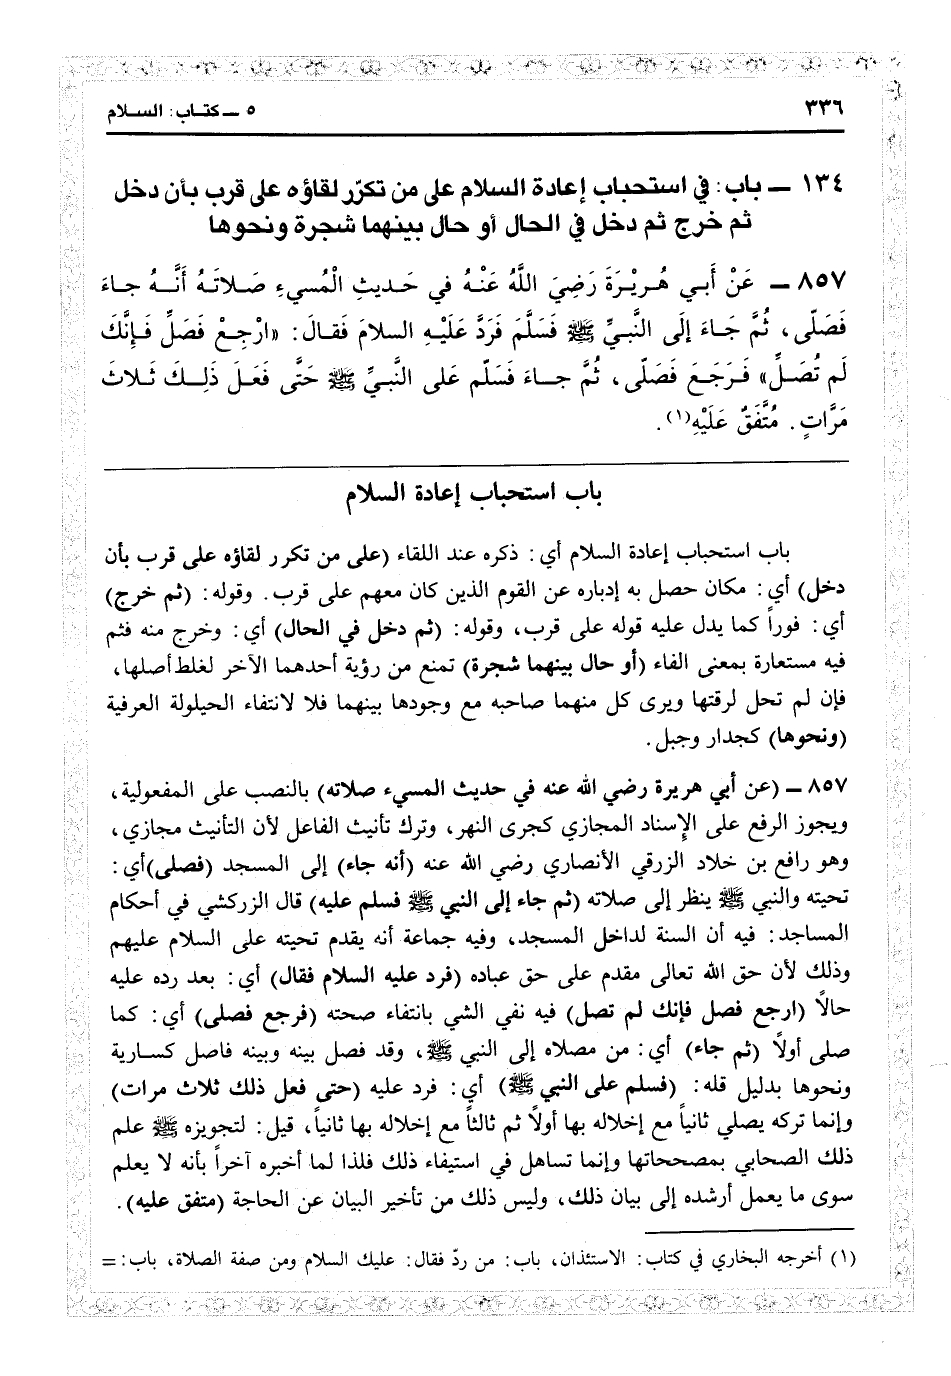 ٣٣٦
٥ ــ كتاب: السلام
١٣٤ ــ باب: في استحباب إعادة السلام على من تكرّر لقاؤه على قرب بأن دخل
ثم خرج ثم دخل في الحال أو حال بينهما شجرة ونحوها
٨٥٧ ــ عَنْ أَبي هُرَيْرَةَ رَضِيَ اللَّهُ عَنْهُ في حَديثِ الْمُسيءِ صَلاتَهُ أَنَّهُ جاءَ
فَصَلّى، ثُمَّ جَاءَ إلَى النَّبيِّ ﷺ فَسَلَّمَ فَرَدَّ عَلَيْهِ السلامَ فَقالَ: «ارْجِعْ فَصَلِّ فَإنَّكَ
لَم تُصَلِّ» فَرَجَعَ فَصَلّى، ثُمَّ جاءَ فَسَلّم عَلى النَّبيِّ ﷺ حَتَّى فَعَلَ ذَلِكَ ثَلاثَ
مَرَّاتٍ. مُتَّفَقٌ عَلَيْهِ(١).
باب استحباب إعادة السلام
باب استحباب إعادة السلام أي: ذكره عند اللقاء (على من تكرر لقاؤه على قرب بأن
دخل) أي: مكان حصل به إدباره عن القوم الذين كان معهم على قرب. وقوله: (ثم خرج)
أي: فوراً كما يدل عليه قوله على قرب، وقوله: (ثم دخل في الحال) أي: وخرج منه فثم
فيه مستعارة بمعنى الفاء (أو حال بينهما شجرة) تمنع من رؤية أحدهما الآخر لغلظ أصلها،
فإن لم تحل لرقتها ويرى كل منهما صاحبه مع وجودها بينهما فلا لانتفاء الحيلولة العرفية
(ونحوها) كجدار وجبل.
٨٥٧ ــ (عن أبي هريرة رضي الله عنه في حديث المسيء صلاته) بالنصب على المفعولية،
ويجوز الرفع على الإسناد المجازي كجرى النهر، وترك تأنيث الفاعل لأن التأنيث مجازي،
وهو رافع بن خلاد الزرقي الأنصاري رضي الله عنه (أنه جاء) إلى المسجد (فصلى)أي:
تحيته والنبي ﷺ ينظر إلى صلاته (ثم جاء إلى النبي ﷺ فسلم عليه) قال الزركشي في أحكام
المساجد: فيه أن السنة لداخل المسجد، وفيه جماعة أنه يقدم تحيته على السلام عليهم
وذلك لأن حق الله تعالى مقدم على حق عباده (فرد عليه السلام فقال) أي: بعد رده عليه
حالاً (ارجع فصل فإنك لم تصل) فيه نفي الشي بانتفاء صحته (فرجع فصلى) أي: كما
صلى أولاً (ثم جاء) أي: من مصلاه إلى النبي ﷺ، وقد فصل بينه وبينه فاصل كسارية
ونحوها بدليل قله: (فسلم على النبي ﷺ) أي: فرد عليه (حتى فعل ذلك ثلاث مرات)
وإنما تركه يصلي ثانياً مع إخلاله بها أولاً ثم ثالثاً مع إخلاله بها ثانياً، قيل: لتجويزه ﷺ علم
ذلك الصحابي بمصححاتها وإنما تساهل في استيفاء ذلك فلذا لما أخبره آخراً بأنه لا يعلم
سوى ما يعمل أرشده إلى بيان ذلك، وليس ذلك من تأخير البيان عن الحاجة (متفق عليه).
(١) أخرجه البخاري في كتاب: الاستئذان، باب: من ردّ فقال: عليك السلام ومن صفة الصلاة، باب: =